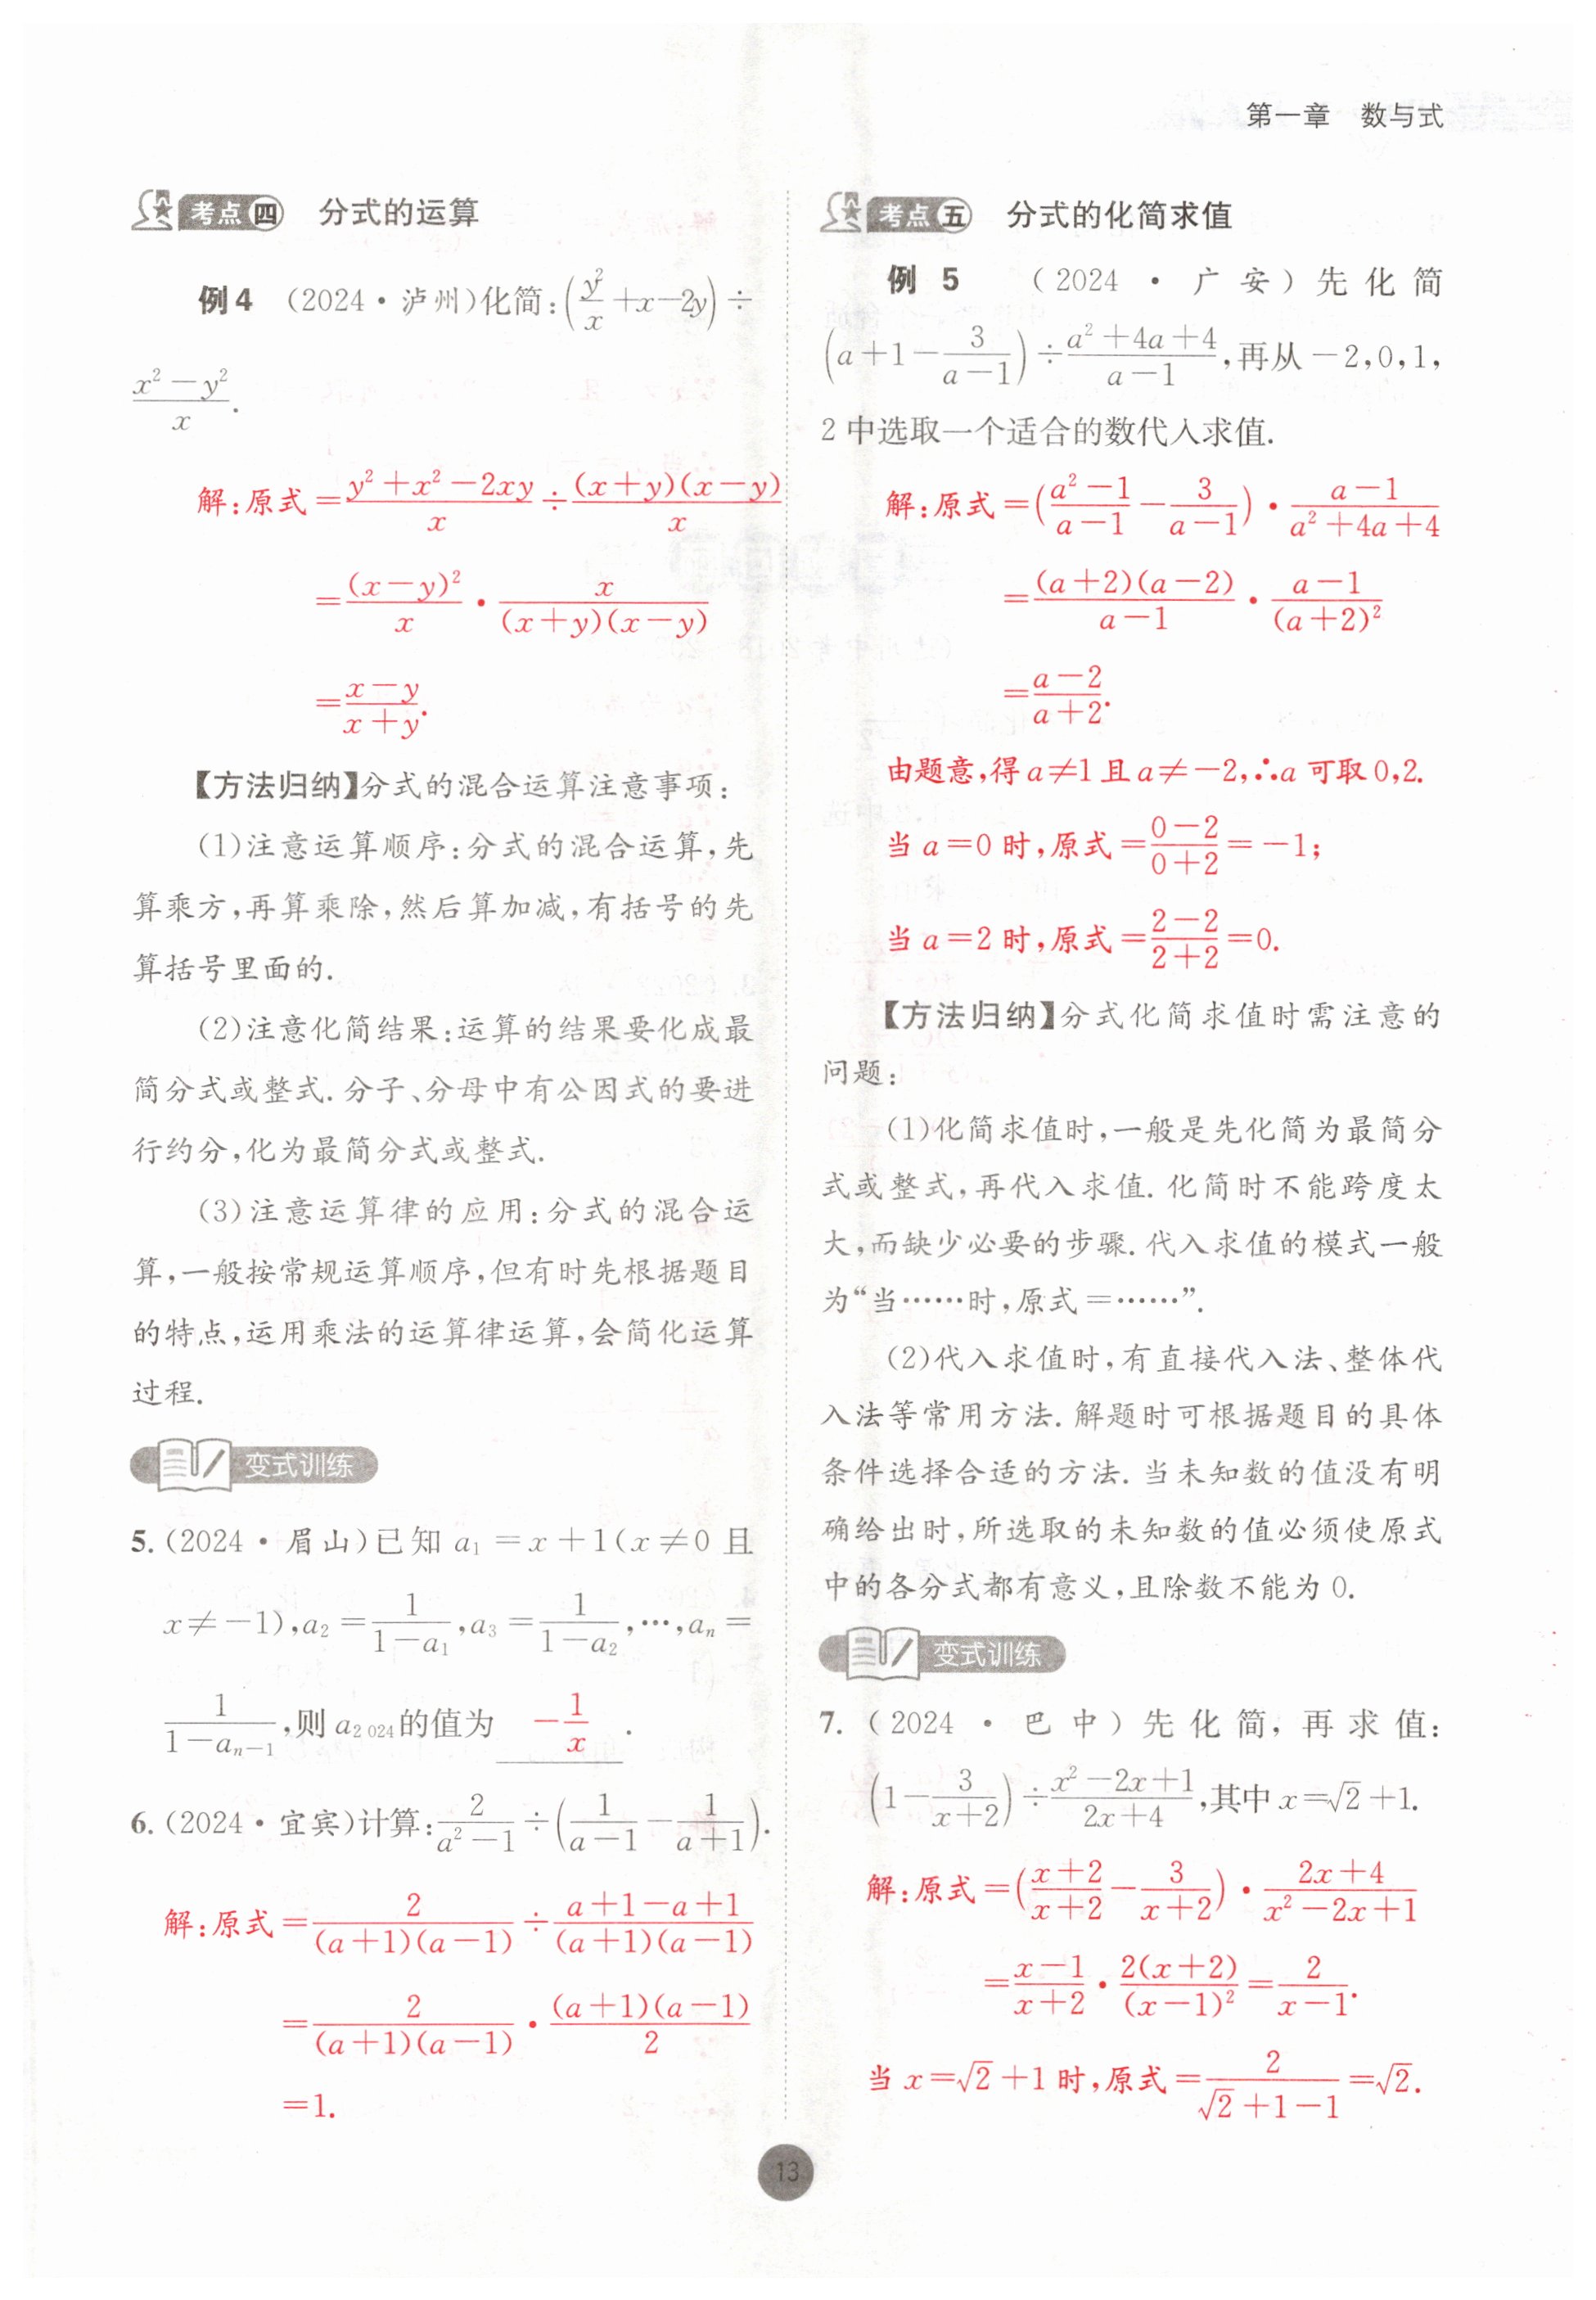 第一章 数与式
考点四 分式的运算
例4 (2024·泸州)化简:(y²/x+x-2y)÷
(x²-y²)/x.
解:原式=(y²+x²-2xy)/x÷(x+y)(x-y)/x
=(x-y)²/x·x/((x+y)(x-y))
=(x-y)/(x+y).
【方法归纳】分式的混合运算注意事项:
(1)注意运算顺序:分式的混合运算,先
算乘方,再算乘除,然后算加减,有括号的先
算括号里面的.
(2)注意化简结果:运算的结果要化成最
简分式或整式.分子、分母中有公因式的要进
行约分,化为最简分式或整式.
(3)注意运算律的应用:分式的混合运
算,一般按常规运算顺序,但有时先根据题目
的特点,运用乘法的运算律运算,会简化运算
过程.
变式训练
5.(2024·眉山)已知a₁=x+1(x≠0且
x≠-1),a₂=1/(1-a₁),a₃=1/(1-a₂),…,aₙ=
1/(1-aₙ₋₁),则a₂₀₂₄的值为 -1/x .
6.(2024·宜宾)计算:2/(a²-1)÷(1/(a-1)-1/(a+1)).
解:原式=2/((a+1)(a-1))÷(a+1-a+1)/((a+1)(a-1))
=2/((a+1)(a-1))·(a+1)(a-1)/2
=1.
考点五 分式的化简求值
例5 (2024·广安)先化简
(a+1-3/(a-1))÷(a²+4a+4)/(a-1),再从-2,0,1,
2中选取一个适合的数代入求值.
解:原式=((a²-1)/(a-1)-3/(a-1))·(a-1)/(a²+4a+4)
=(a+2)(a-2)/(a-1)·(a-1)/(a+2)²
=(a-2)/(a+2).
由题意,得a≠1且a≠-2,∴a可取0,2.
当a=0时,原式=(0-2)/(0+2)=-1;
当a=2时,原式=(2-2)/(2+2)=0.
【方法归纳】分式化简求值时需注意的
问题:
(1)化简求值时,一般是先化简为最简分
式或整式,再代入求值.化简时不能跨度太
大,而缺少必要的步骤.代入求值的模式一般
为“当……时,原式=……”.
(2)代入求值时,有直接代入法、整体代
入法等常用方法.解题时可根据题目的具体
条件选择合适的方法.当未知数的值没有明
确给出时,所选取的未知数的值必须使原式
中的各分式都有意义,且除数不能为0.
变式训练
7.(2024·巴中)先化简,再求值:
(1-3/(x+2))÷(x²-2x+1)/(2x+4),其中x=√2+1.
解:原式=((x+2)/(x+2)-3/(x+2))·(2x+4)/(x²-2x+1)
=(x-1)/(x+2)·2(x+2)/(x-1)²=2/(x-1).
当x=√2+1时,原式=2/(√2+1-1)=√2.
13